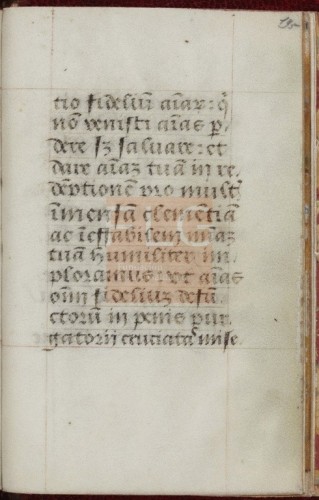 tio fideliũ aĩaꝝ: q̃
nõ venisti aĩas ꝑ-
dere sꝫ saluare: et
dare aĩaꝫ tuã in re
dẽptionẽ pro mult̃
ĩmensã clemẽtiã
ac ĩeffabilem mĩaꝫ
tuã humiliter im
ploramus: vt aĩas
oĩm fideliuꝫ defũ-
ctorũ in penis pur
gatorii cruciatas mise